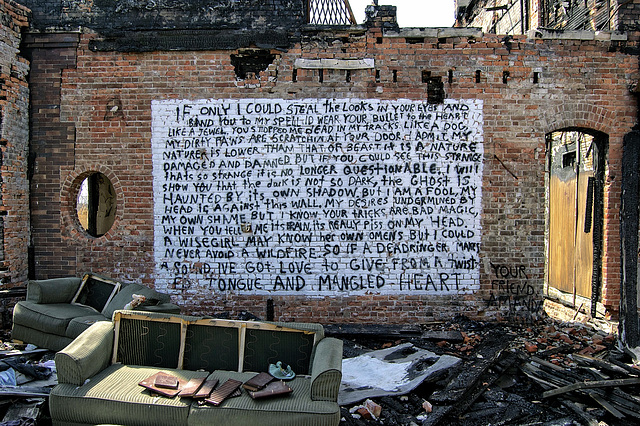 IF ONLY I COULD STEAL THE LOOKS IN YOUR EYES AND
BAND YOU TO MY SPELL ID WEAR YOUR BULLET TO the HEART
LIKE A JEWEL. YOU STOPPED ME dEAD IN MY TRACKS LIKE A DOG,
MY DIRTY PAWS ARE SCRATCHING AT YOUR DOOR. I ADMIT MY
NATURE IS LOWER THAN THAT OF BEAST it is A NATURE
DAMAGED AND DAMNED BUT IF YOU COULD SEE THIS STRANGE
thats so STRANGE it is NO LONGER QUESTIONABLE, I will
SHOW YOU that the dark is NOT SO DARK, the GHOST IS
HAUNTED BY its OWN SHADOW. BUT I AM A FOOL, MY
HEAD IS AGAINST this WALL, MY DESIRES UNDERMINED BY
MY OWN SHAME. BUT I KNOW YOUR TRICKS ARE BAD MAGIC,
WHEN YOU tell ME its RAIN, its REALLY PISS ON MY HEAD.
A WISEGIRL MAY KNOW her OWN OMENS BUT I COULD
NEVER AVOID A WILDFIRE. SO IF A DEADRINGER MAKES
A SOUND, IVE GOT LOVE to GIVE FROM A TWIST
ED TONGUE AND MANGLED HEART.
YOUR
FRIEND